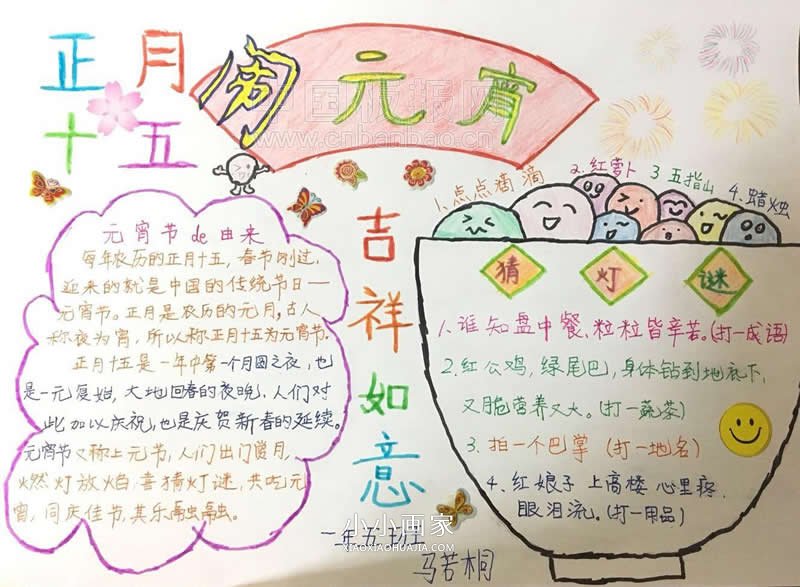 正月
十五
闹元宵
中国版报网
www.cnbanbao.cn
元宵节de由来
每年农历的正月十五，春节刚过，
迎来的就是中国的传统节日—
元宵节。正月是农历的元月，古人
称夜为宵，所以称正月十五为元宵节。
正月十五是一年中第一个月圆之夜，也
是一元复始，大地回春的夜晚，人们对
此加以庆祝，也是庆贺新春的延续。
元宵节又称上元节，人们出门赏月，
燃灯放焰，喜猜灯谜，共吃元
宵，同庆佳节，其乐融融。
吉祥如意
1.点点滴滴
2.红萝卜
3 五指山
4.蜡烛
猜灯谜
1.谁知盘中餐，粒粒皆辛苦。(打一成语)
2.红公鸡，绿尾巴，身体钻到地底下，
又脆营养又大。(打一蔬菜)
3.拍一个巴掌 (打一地名)
4.红娘子 上高楼 心里疼，
眼泪流。(打一用品)
一年五班
马若桐
小小画家
XIAOXIAOHUAJIA.COM